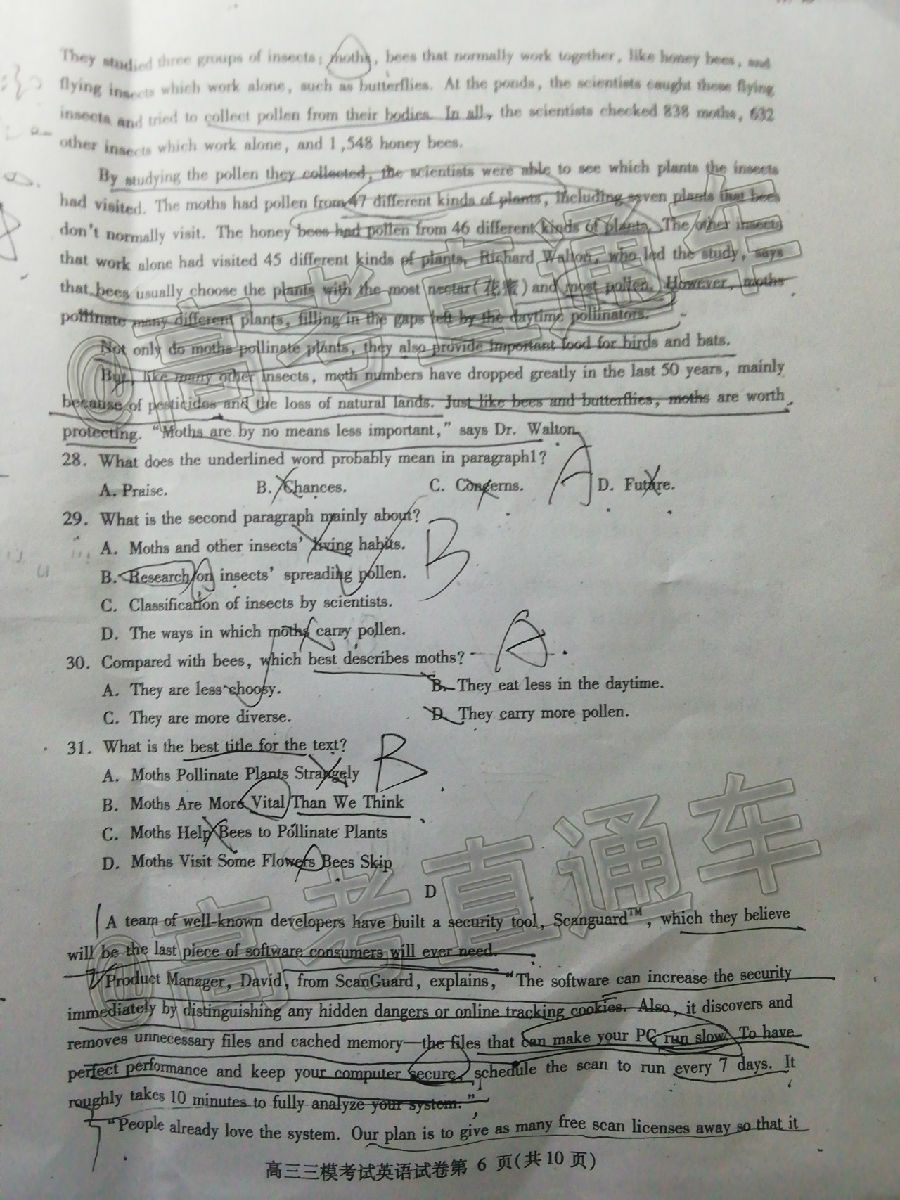 They studied three groups of insects; moths, bees that normally work together, like honey bees, and
flying insects which work alone, such as butterflies. At the ponds, the scientists caught these flying
insects and tried to collect pollen from their bodies. In all, the scientists checked 838 moths, 632
other insects which work alone, and 1,548 honey bees.
By studying the pollen they collected, the scientists were able to see which plants the insects
had visited. The moths had pollen from 47 different kinds of plants, including seven plants that bees
don't normally visit. The honey bees had pollen from 46 different kinds of plants. The other insects
that work alone had visited 45 different kinds of plants. Richard Walton, who led the study, says
that bees usually choose the plants with the most nectar(花蜜) and most pollen. However, moths
pollinate many different plants, filling in the gaps left by the daytime pollinators.
Not only do moths pollinate plants, they also provide important food for birds and bats.
But, like many other insects, moth numbers have dropped greatly in the last 50 years, mainly
because of pesticides and the loss of natural lands. Just like bees and butterflies, moths are worth
protecting. "Moths are by no means less important," says Dr. Walton.
28. What does the underlined word probably mean in paragraph1?
A. Praise. B. Chances. C. Concerns. D. Future.
A
29. What is the second paragraph mainly about?
A. Moths and other insects' living habits.
B. Research on insects' spreading pollen.
B
C. Classification of insects by scientists.
D. The ways in which moths carry pollen.
30. Compared with bees, which best describes moths?
A
A. They are less choosy. B. They eat less in the daytime.
C. They are more diverse. D. They carry more pollen.
31. What is the best title for the text?
B
A. Moths Pollinate Plants Strangely
B. Moths Are More Vital Than We Think
C. Moths Help Bees to Pollinate Plants
D. Moths Visit Some Flowers Bees Skip
D
A team of well-known developers have built a security tool, Scanguard™, which they believe
will be the last piece of software consumers will ever need.
Product Manager, David, from ScanGuard, explains, "The software can increase the security
immediately by distinguishing any hidden dangers or online tracking cookies. Also, it discovers and
removes unnecessary files and cached memory—the files that can make your PC run slow. To have
perfect performance and keep your computer secure, schedule the scan to run every 7 days. It
roughly takes 10 minutes to fully analyze your system."
"People already love the system. Our plan is to give as many free scan licenses away so that it
高三三模考试英语试卷第 6 页(共10页)
@高考直通车
@高考直通车